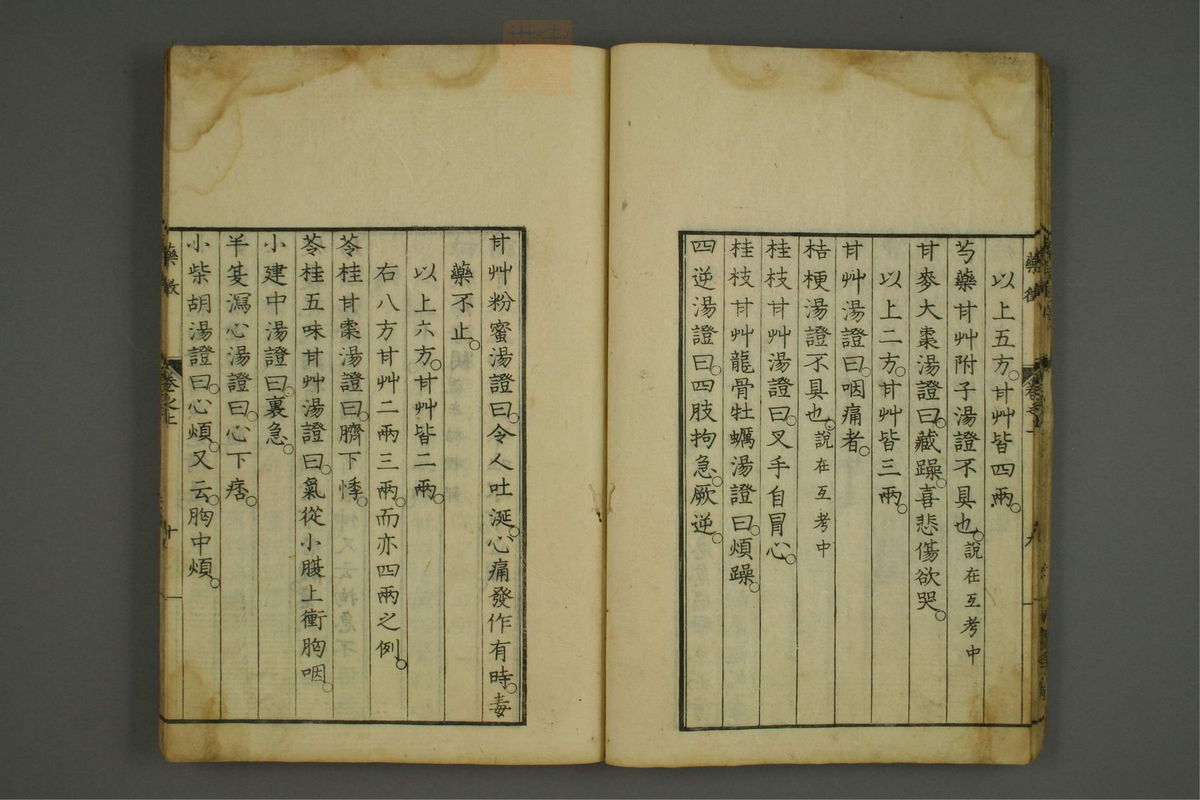 藥徵
卷之上
九
以上五方。甘艸皆四兩。
芍藥甘艸附子湯證不具也。說在互考中
甘麥大棗湯證曰。藏躁。喜悲傷欲哭。
以上二方。甘艸皆三兩。
甘艸湯證曰。咽痛者。
桔梗湯證不具也。說在互考中
桂枝甘艸湯證曰。叉手自冒心。
桂枝甘艸龍骨牡蠣湯證曰。煩躁。
四逆湯證曰。四肢拘急。厥逆。
甘艸粉蜜湯證曰。令人吐涎。心痛發作有時。毒
藥不止。
以上六方。甘艸皆二兩。
右八方甘艸二兩三兩。而亦四兩之例。
苓桂甘棗湯證曰。臍下悸。
苓桂五味甘艸湯證曰。氣從小腹上衝胸咽。
小建中湯證曰。裏急。
半夏瀉心湯證曰。心下痞。
小柴胡湯證曰。心煩。又云。胸中煩。
藥徵
卷之上
十